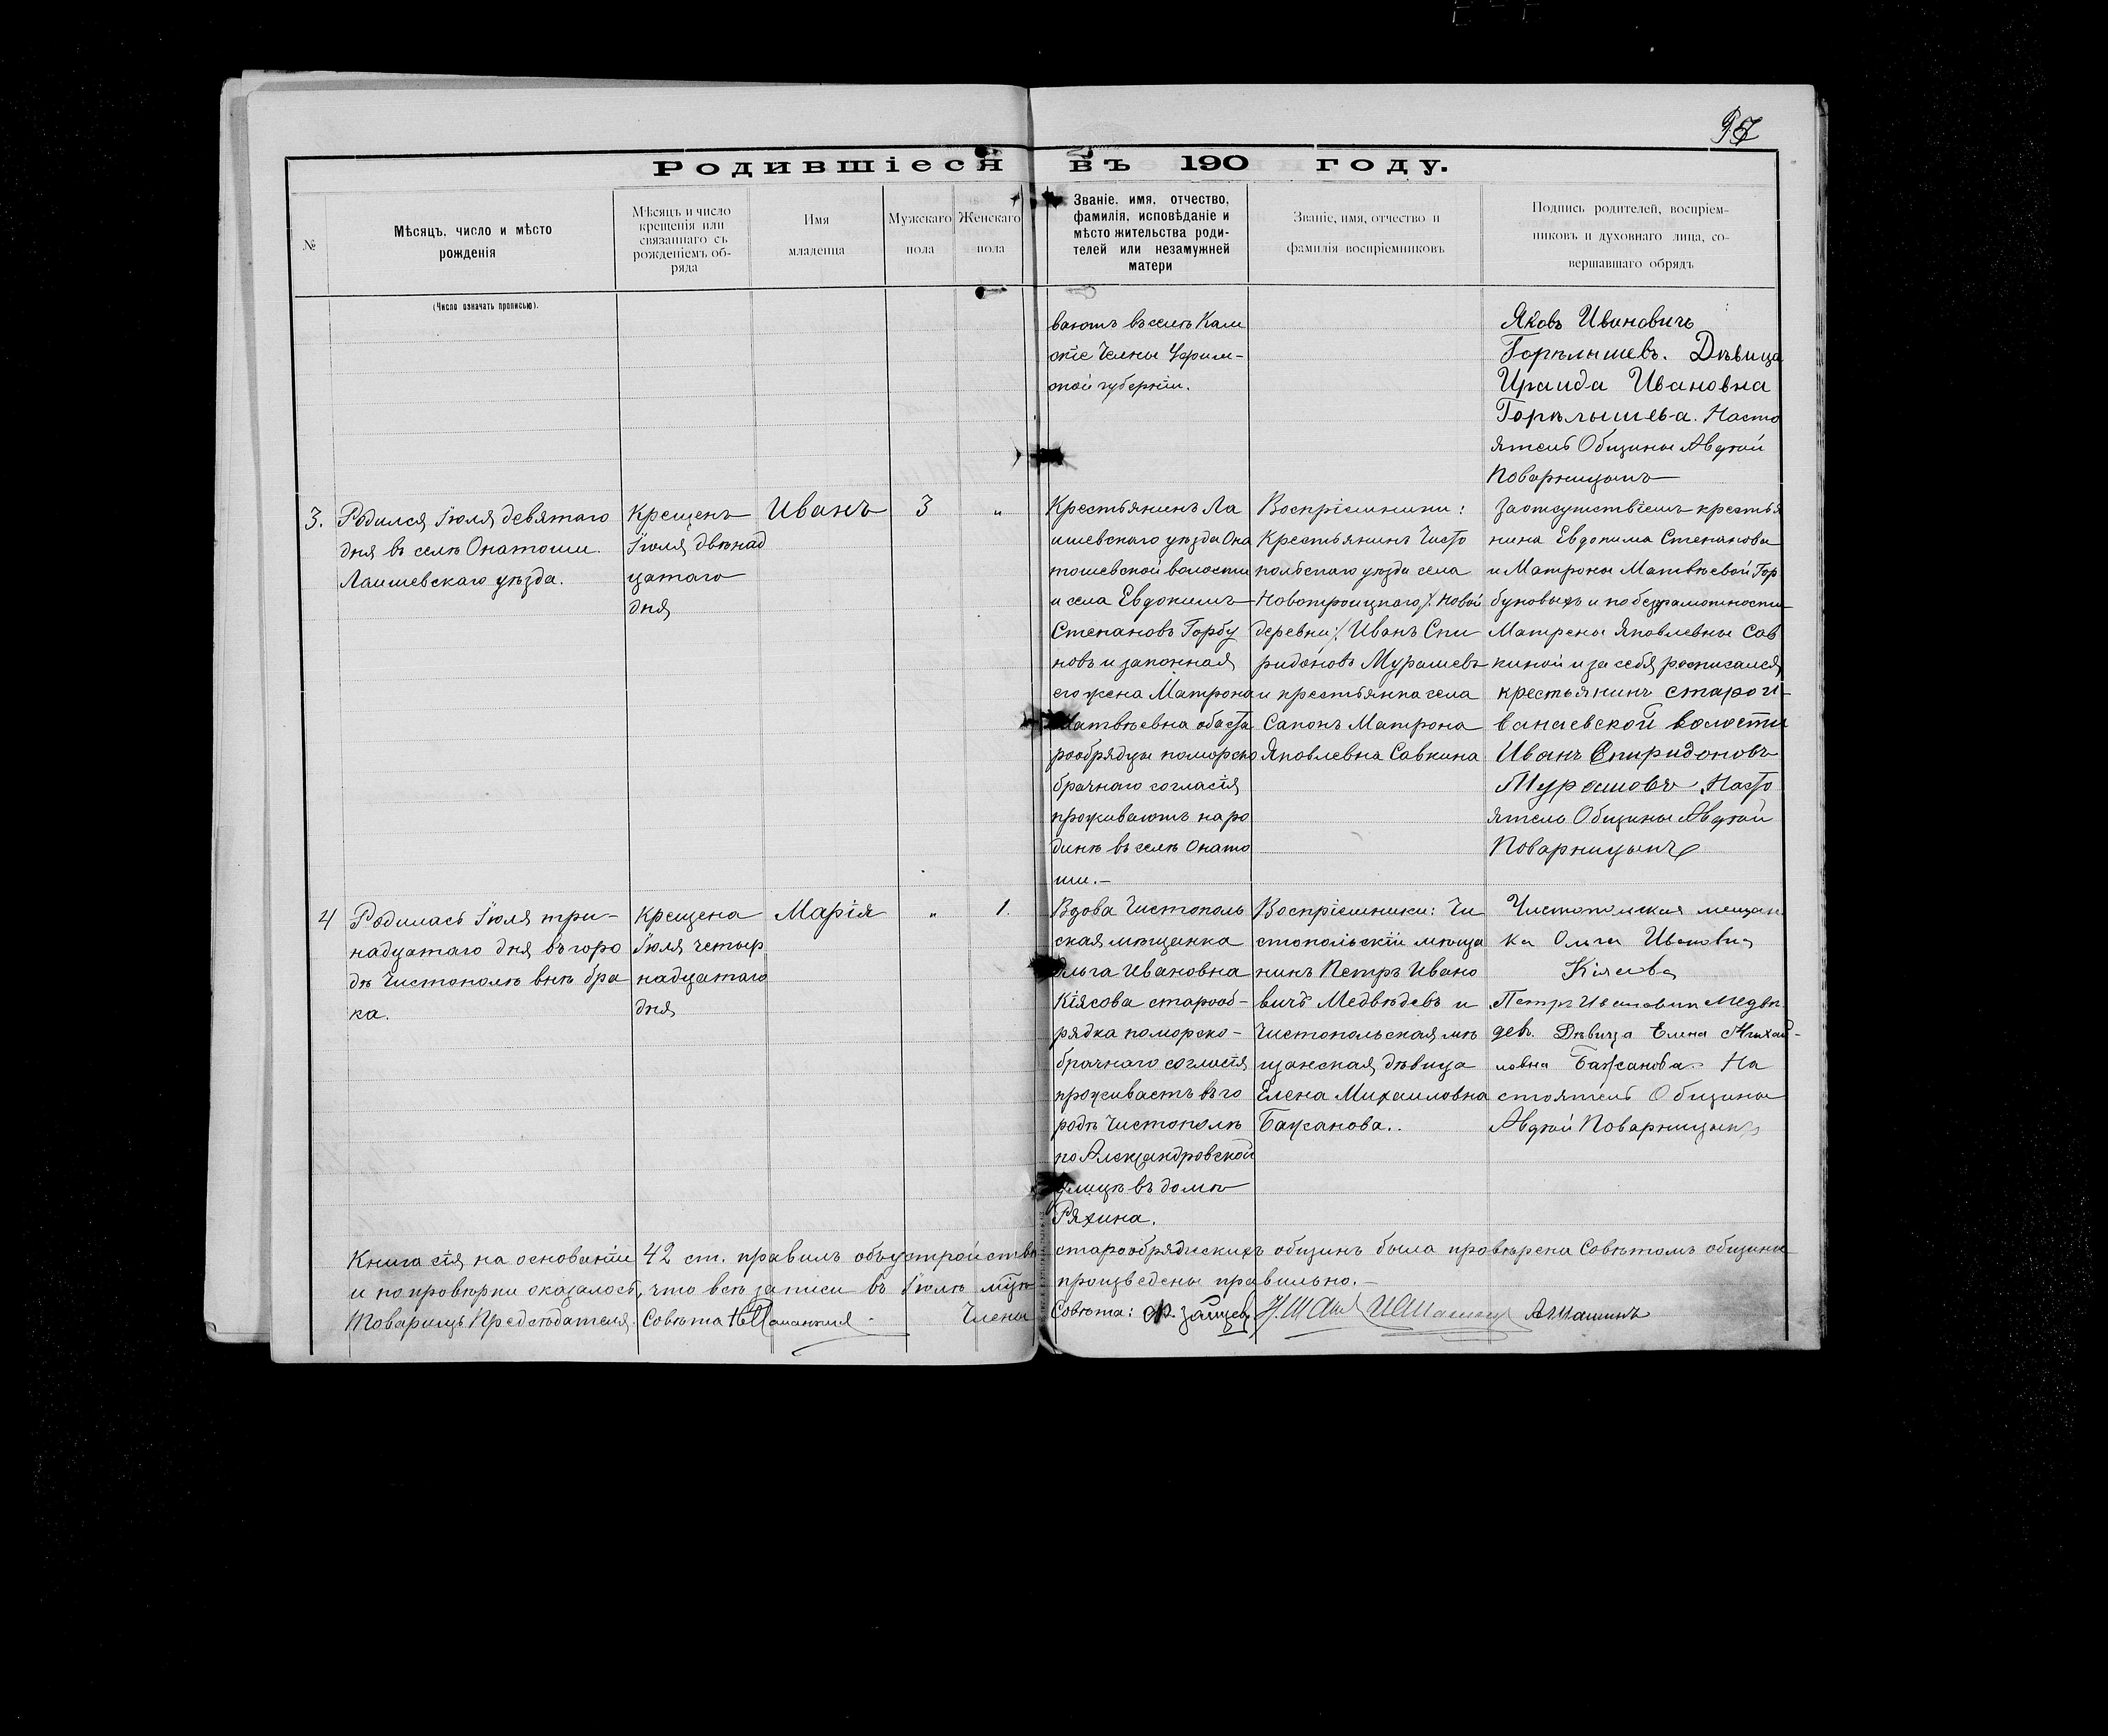 97
Родившіеся въ 190 году.
№
Мѣсяцъ, число и мѣсто
рожденія
Мѣсяцъ и число
крещенія или
связаннаго съ
рожденіемъ об-
ряда
Имя
младенца
Мужскаго
пола
Женскаго
пола
Званіе, имя, отчество,
фамилія, исповѣданіе и
мѣсто жительства роди-
телей или незамужней
матери
Званіе, имя, отчество и
фамилія воспріемниковъ
Подпись родителей, воспріем-
никовъ и духовнаго лица, со-
вершавшаго обрядъ
(Число означать прописью).
ваютъ въ селѣ Кам
скіе Челны Уфим-
ской губерніи.
Яковъ Ивановичъ
Горѣлышевъ. Дѣвица
Ираида Ивановна
Горѣлышева. Насто
ятель Общины Авдѣй
Поварницынъ
3.
Родился Іюля девятаго
дня въ селѣ Онатоши.
Лаишевскаго уѣзда.
Крещенъ
Іюля двѣнад
цатаго
дня
Иванъ
3
"
Крестьянинъ Ла
ишевскаго уѣзда Она
тошевской волости
и села Евдокимъ
Степановъ Горбу
новъ и законная
его жена Матрона
Матвѣевна оба ста
рообрядцы поморско
брачнаго согласія
проживаютъ на ро
динѣ въ селѣ Онато
ши.-
Воспріемники:
Крестьянинъ Чисто
польскаго уѣзда села
Новотроицкаго /. Новой
деревни ./. Иванъ Спи
ридоновъ Мурашевъ
и крестьянка села
Сапонъ Матрона
Яковлевна Савкина
За отсутствіемъ крестья
нина Евдокима Степанова
и Матроны Матвѣевой Гор
буновыхъ и по безграмотности
Матрены Яковлевны Сав
киной и за себя росписался
крестьянинъ старои-
ванаевской волости
Иванъ Спиридоновъ
Мурашовъ. Насто
ятель Общины Авдѣй
Поварницынъ
4
Родилась Іюля три-
надцатаго дня въ горо
дѣ Чистополѣ внѣ бра
ка.
Крещена
Іюля четыр
надцатаго
дня
Марія
"
1.
Вдова Чистополь
ская мѣщанка
Ольга Ивановна
Кіясова старооб-
рядка поморско-
брачнаго согласія
проживаетъ въ го
родѣ Чистополѣ
по Александровской
улицѣ въ домѣ
Ряхина.
Воспріемники: Чи
стопольскій мѣща
нинъ Петръ Ивано
вичъ Медвѣдевъ и
Чистопольская мѣ
щанская дѣвица
Елена Михаиловна
Бажанова..
Чистопольская мещан
ка Ольга Ивановна
Кіясова
Петръ Ивановичъ Медвѣ
девъ. Дѣвица Елена Михай-
ловна Бажанова. На
стоятель Общины
Авдѣй Поварницынъ
Книга сія на основаніи 42 ст. правилъ объ устройствѣ старообрядческихъ общинъ была провѣрена Совѣтомъ общины
и по провѣрки оказалось, что всѣ записи въ Іюлѣ мѣцѣ произведены правильно.-
Товарищъ Предсѣдателя Совѣта Члены Совѣта: Ф. Зайцевъ